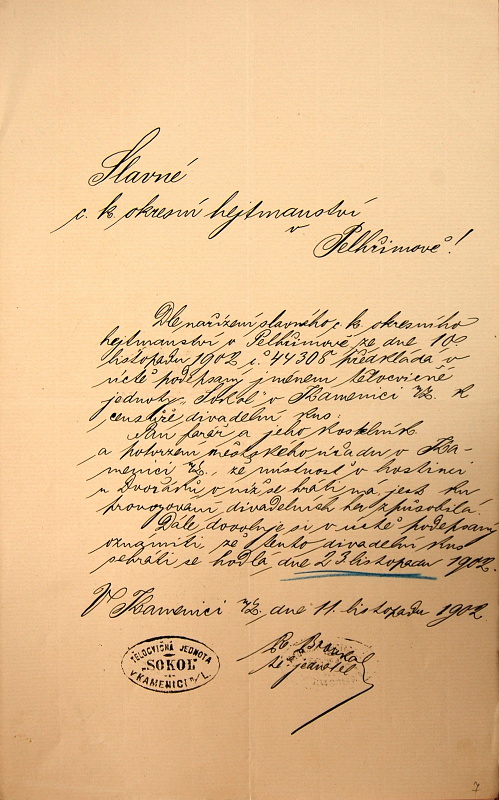 Slavné
c. k. okresní hejtmanství
v
Pelhřimově!
Dle nařízení slavného c. k. okresního
hejtmanství v Pelhřimově ze dne 10ho
listopadu 1902 č. 44305 předkládá v
úctě podepsaný jménem tělocvičné
jednoty „Sokol" v Kamenici n/L. k
censuře divadelní kus:
Pan farář a jeho kostelník
a potvrzení městského úřadu v Ka-
menici n/L., že místnost v hostinci
u Dvořáků v níž se hráti má jest ku
provozování divadelních her způsobilá.
Dále dovoluje si v úctě podepsaný
oznámiti že tento divadelní kus
sehráti se hodlá dne 23 listopadu 1902.
V Kamenici n/L. dne 11. listopadu 1902
TĚLOCVIČNÁ JEDNOTA
„SOKOL"
V KAMENICI n/L.
t. č. jednatel
7